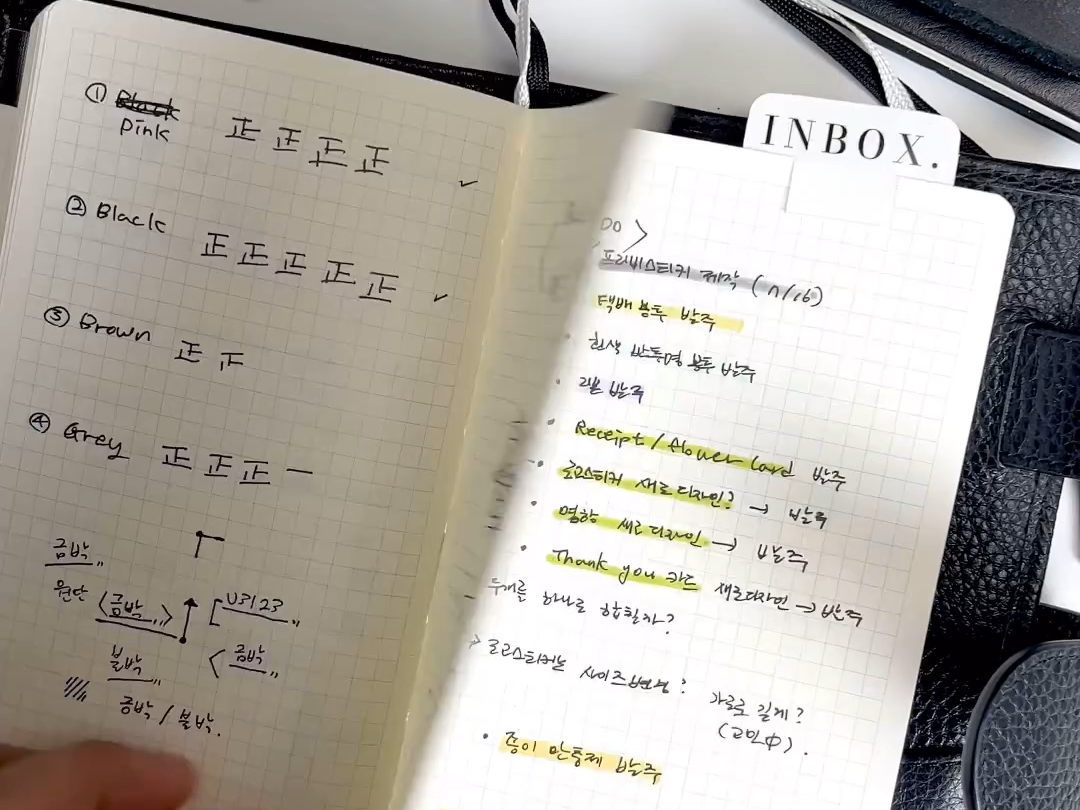 ① Black
Pink 正 正 正 正 ✓
② Black 正 正 正 正 正 ✓
③ Brown 正 正
④ Grey 正 正 正 一
금박〃
원단 〈금박〃〉 [U3123〃
불박〃 〈금박〃
증박 / 불박.
INBOX.
DO >
프리비스티커 제작 (n/16)
택배봉투 발주
흰색 반투명 봉투 발주
· 리본 발주
· Receipt / flower card 발주
· 로고스티커 새로디자인? → 발주
· 명함 새로디자인 → 발주
· Thank you 카드 새로디자인 → 발주
두개를 하나로 합칠까?
> 로고스티커는 사이즈변경? 가로로 길게?
(고민中).
· 종이 완충제 발주